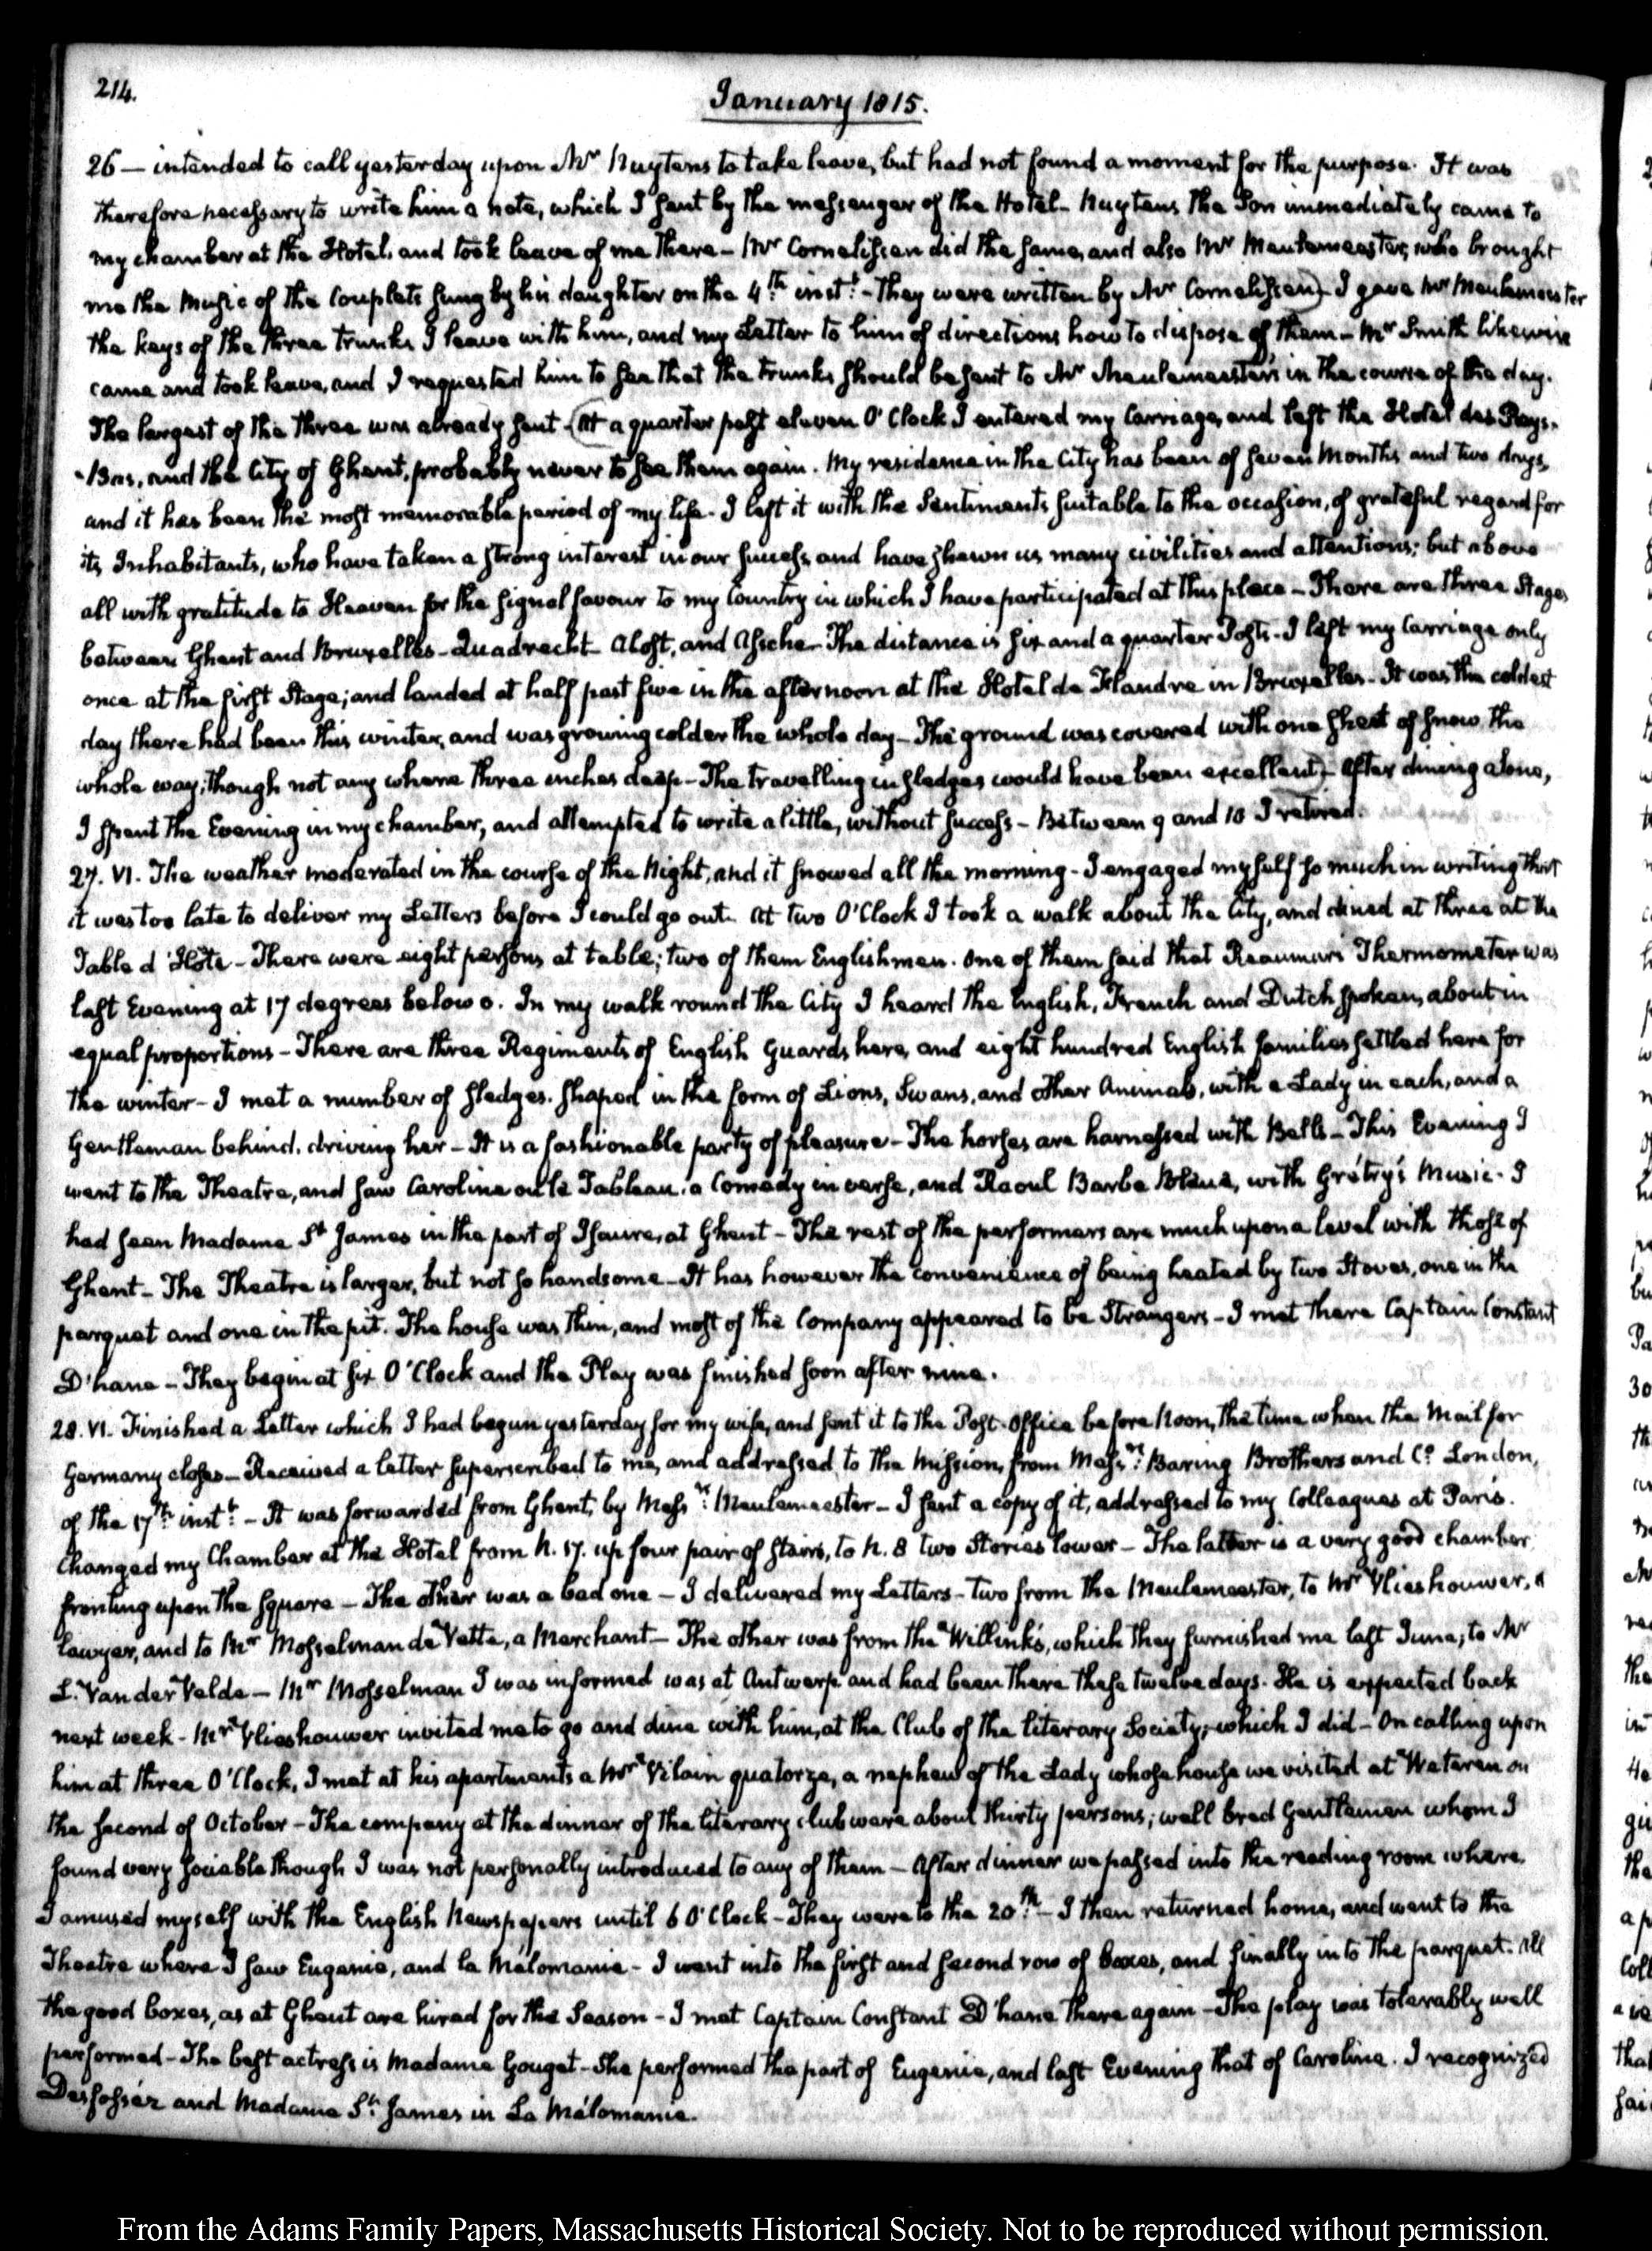 214.
January 1815.
26 — intended to call yesterday upon Mr Huytens to take leave, but had not found a moment for the purpose. It was
therefore necessary to write him a note, which I sent by the messenger of the Hotel — Huytens the Son immediately came to
my chamber at the Hotel, and took leave of me there — Mr Cornelissen did the same, and also Mr Meulemeester, who brought
me the Music of the Couplets sung by his daughter on the 4th inst: — They were written by Mr Cornelissen) — I gave Mr Meulemeester
the keys of the three trunks I leave with him, and my Letter to him of directions how to dispose of them — Mr Smith likewise
came and took leave, and I requested him to see that the trunks should be sent to Mr Meulemeester's in the course of the day.
The largest of the three was already sent — (At a quarter past eleven O'Clock I entered my Carriage, and left the Hotel des Pays-
-Bas, and the City of Ghent, probably never to see them again. My residence in the City has been of seven Months and two days,
and it has been the most memorable period of my life. I left it with the Sentiments suitable to the occasion, of grateful regard for
its Inhabitants, who have taken a strong interest in our success, and have shewn us many civilities and attentions; but above
all with gratitude to Heaven for the signal favour to my Country in which I have participated at this place — There are three Stages
between Ghent and Bruxelles — Quadrecht — Alost, and Assche — The distance is six and a quarter Posts. I left my Carriage only
once at the first Stage; and landed at half past five in the afternoon at the Hotel de Flandre in Bruxelles — It was the coldest
day there had been this winter, and was growing colder the whole day — The ground was covered with one sheet of snow the
whole way; though not any where three inches deep — The travelling in sledges would have been excellent) — After dining alone,
I spent the Evening in my chamber, and attempted to write a little, without success — Between 9 and 10 I retired.
27. VI. The weather moderated in the course of the Night, and it snowed all the morning — I engaged myself so much in writing that
it was too late to deliver my Letters before I could go out. At two O'Clock I took a walk about the City, and dined at three at the
Table d'Hôte — There were eight persons at table; two of them Englishmen. One of them said that Reaumur's Thermometer was
last Evening at 17 degrees below 0. In my walk round the City I heard the English, French and Dutch spoken, about in
equal proportions — There are three Regiments of English Guards here, and eight hundred English families settled here for
the winter — I met a number of sledges. shaped in the form of Lions, Swans, and other Animals, with a Lady in each, and a
Gentleman behind, driving her — It is a fashionable party of pleasure — The horses are harnessed with Bells — This Evening I
went to the Theatre, and saw Caroline ou le Tableau, a Comedy in verse, and Raoul Barbe Bleue, with Grétry's Music. I
had seen Madame St James in the part of Isaure, at Ghent — The rest of the performers are much upon a level with those of
Ghent — The Theatre is larger, but not so handsome — It has however the convenience of being heated by two Stoves, one in the
parquet and one in the pit. The house was thin, and most of the Company appeared to be Strangers — I met there Captain Constant
D'hane — They begin at six O'Clock and the Play was finished soon after nine.
28. VI. Finished a Letter which I had begun yesterday for my wife, and sent it to the Post-Office before Noon, the time when the Mail for
Germany closes — Received a letter superscribed to me, and addressed to the Mission, from Messrs: Baring Brothers and Co London,
of the 17th: inst: — It was forwarded from Ghent, by Messrs: Meulemeester — I sent a copy of it, addressed to my Colleagues at Paris.
Changed my Chamber at the Hotel from N. 17. up four pair of stairs, to N. 8 two Stories lower — The latter is a very good chamber
fronting upon the square — The other was a bad one — I delivered my Letters — two from the Meulemeester, to Mr Vlieshouwer, a
Lawyer, and to Mr Mosselman de Vette, a Merchant — The other was from the Willinks, which they furnished me last June, to Mr
L. Van der Velde — Mr Mosselman I was informed was at Antwerp and had been there these twelve days. He is expected back
next week — Mr Vlieshouwer invited me to go and dine with him, at the Club of the literary Society; which I did — On calling upon
him at three O'Clock, I met at his apartments a Mr Vilain quatorze, a nephew of the Lady whose house we visited at Weteren on
the second of October — The company at the dinner of the literary club were about thirty persons; well bred Gentlemen whom I
found very sociable though I was not personally introduced to any of them — After dinner we passed into the reading room where
I amused myself with the English Newspapers until 6 O'Clock — They were to the 20th: — I then returned home, and went to the
Theatre where I saw Eugenie, and la Mélomanie — I went into the first and second row of boxes, and finally into the parquet. All
the good boxes, as at Ghent are hired for the Season — I met Captain Constant D'hane there again — The play was tolerably well
performed — The best actress is Madame Gouget — She performed the part of Eugenie, and last Evening that of Caroline. I recognized
Desfossez and Madame St: James in La Mélomanie.
From the Adams Family Papers, Massachusetts Historical Society. Not to be reproduced without permission.